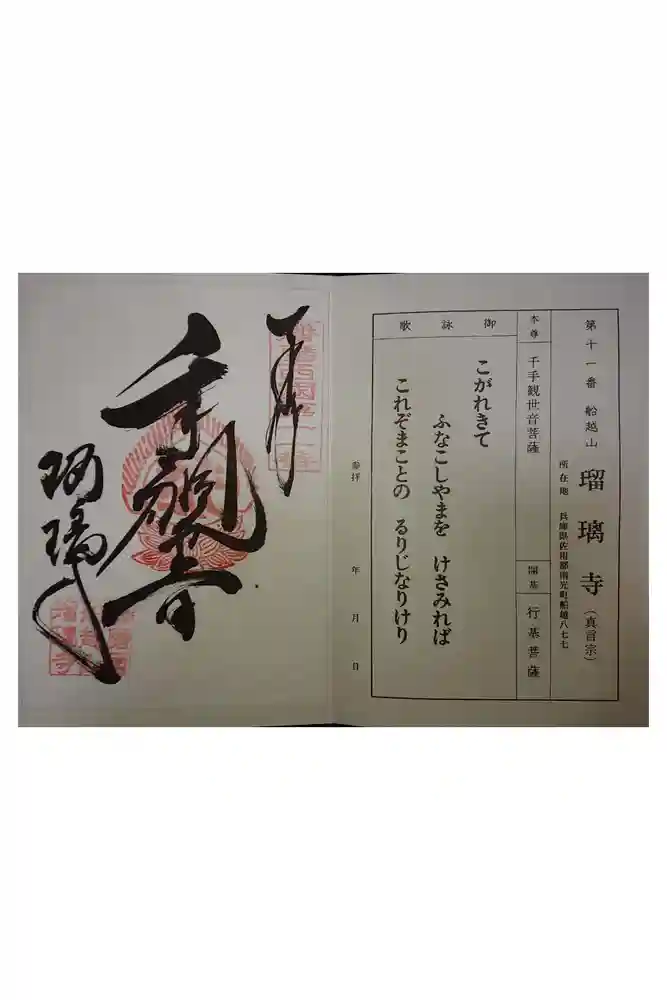 第十一番 船越山 瑠璃寺 (真言宗)
所在地 兵庫県佐用郡南光町船越八七七
本尊 千手観世音菩薩
開基 行基菩薩
御詠歌
こがれきて
ふなこしやまを けさみれば
これぞまことの るりじなりけり
参拝 年 月 日
播磨西国第十一番
奉拝
千手観音
瑠璃寺